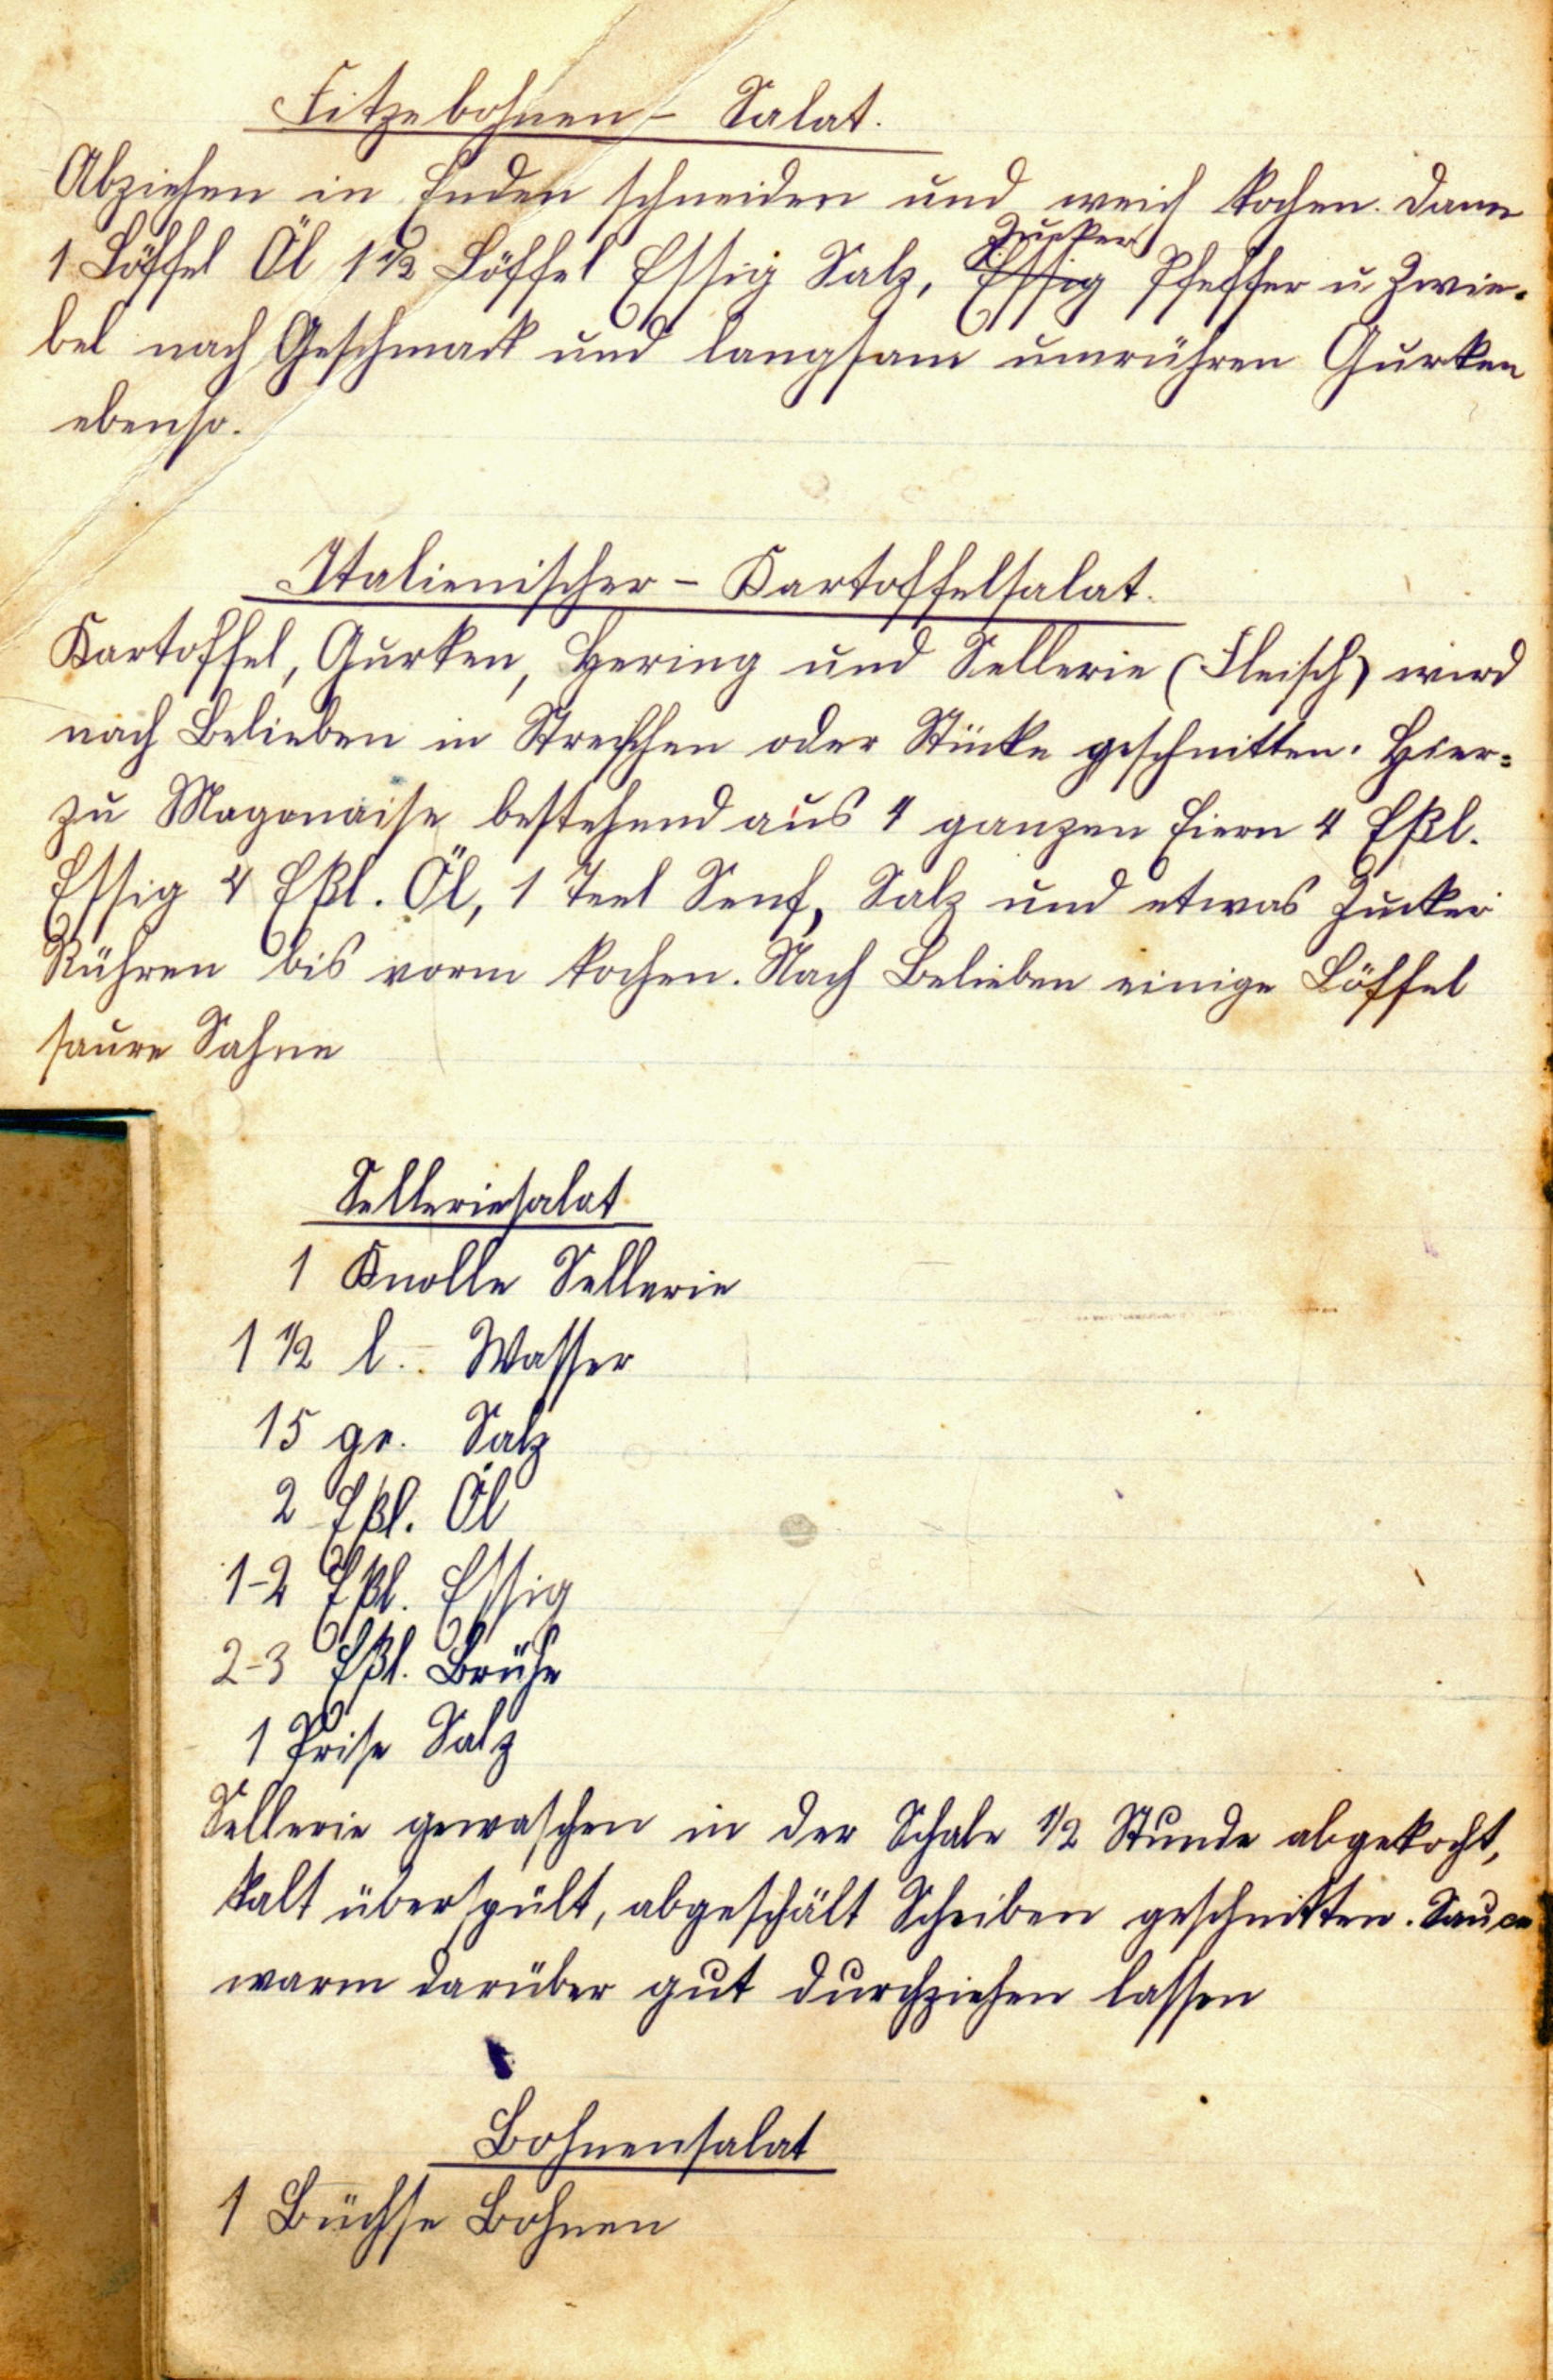 Fitzebohnen - Salat.
Abziehen in Enden schneiden und weich kochen. dann
Zucker
1 Löffel Öl 1 1/2 Löffel Essig Salz, Essig Pfeffer u Zwie-
bel nach Geschmack und langsam umrühren Gurken
ebenso.
Italienischer - Kartoffelsalat.
Kartoffel, Gurken, Hering und Sellerie (Fleisch) wird
nach Belieben in oder Stücke geschnitten. Hier=
zu Magonaise bestehend aus 4 ganzen Eiern 4 Eßl.
Essig 4 Eßl. Öl, 1 Teel Senf, Salz und etwas Zucker
Rühren bis vorm kochen. Nach Belieben einige Löffel
saure Sahne
Selleriesalat
1 Knolle Sellerie
1 1/2 l. Wasser
15 gr. Salz
2 Eßl. Öl
1-2 Eßl. Essig
2-3 Eßl. Brühe
1 Prise Salz
Sellerie gewaschen in der Schale 1/2 Stunde abgekocht,
kalt überspült, abgeschält Scheiben geschnitten. Sauce
warm darüber gut durchziehen lassen
Bohnensalat
1 Büchse Bohnen